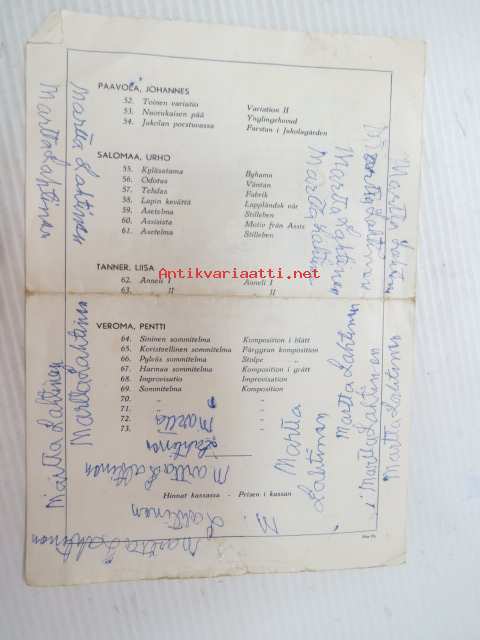 PAAVOLA, JOHANNES
52. Toinen variatio Variation II
53. Nuorukaisen pää Ynglingehuvud
54. Jukolan porstuvassa Farstun i Jukolagården
SALOMAA, URHO
55. Kyläsatama Byhamn
56. Odotus Väntan
57. Tehdas Fabrik
58. Lapin kevättä Lappländsk vår
59. Asetelma Stilleben
60. Assisista Motiv från Assisi
61. Asetelma Stilleben
Antikvariaatti.net
TANNER, LIISA
62. Anneli I Anneli I
63. „ II „ II
VEROMA, PENTTI
64. Sininen sommitelma Komposition i blått
65. Koristeellinen sommitelma Färggrann komposition
66. Pylväs sommitelma Stolpe „
67. Harmaa sommitelma Komposition i grått
68. Improvisatio Improvisation
69. Sommitelma Komposition
70. „ „
71. „ „
72. „
73. „
Hinnat kassassa - Prisen i kassan
Martta Lahtinen
Martta Lahtinen
Martta Lahtinen
Martta Lahtinen
Martta Lahtinen
Martta Lahtinen
Martta Lahtinen
Martta Lahtinen
Martta Lahtinen
Martta Lahtinen
Martta Lahtinen
Martta Lahtinen